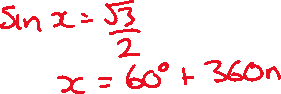 sin x = √3/2
x = 60° + 360n